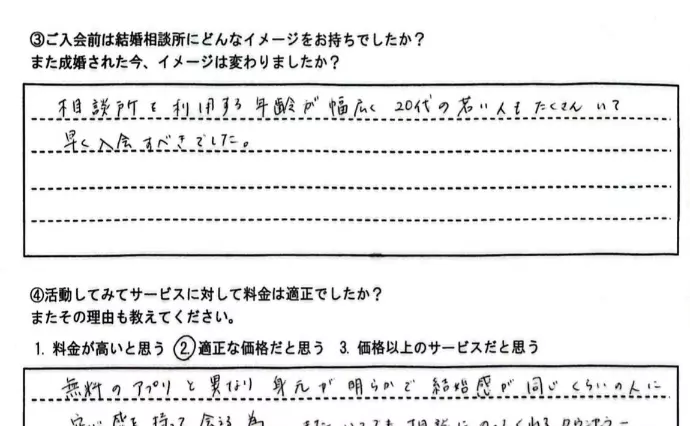 ③ご入会前は結婚相談所にどんなイメージをお持ちでしたか?
また成婚された今、イメージは変わりましたか?
相談所を利用する年齢が幅広く 20代の若い人もたくさんいて
早く入会すべきでした。
④活動してみてサービスに対して料金は適正でしたか?
またその理由も教えてください。
1. 料金が高いと思う ②適正な価格だと思う 3. 価格以上のサービスだと思う
無料のアプリと異なり 身元が明らかで 結婚感が同じくらいの人に
安心感を持って会える為